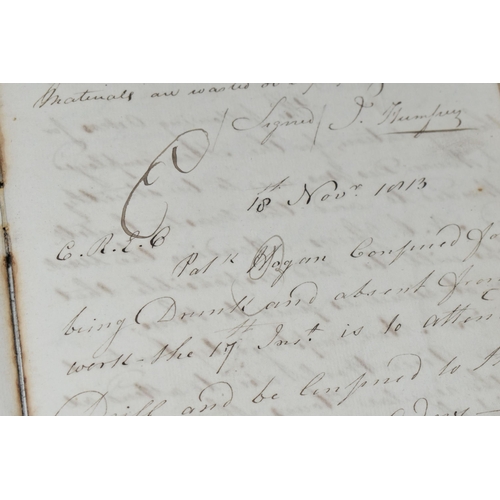 Materials are wasted or
(Signed) J. Humfrey
18th Novr. 1813
C. R. E. O
Patk Hogan Confined for
being Drunk and absent from
work - the 17th Inst. is to atten
Drill and be Confined to th